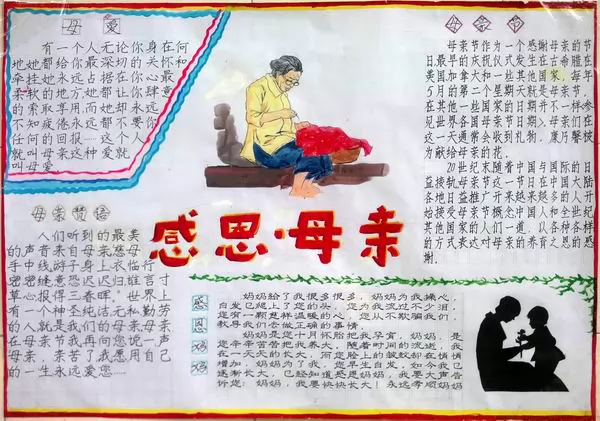 母爱
有一个人无论你身在何
地她都给你最深切的关怀和
牵挂她永远占据在你心最
柔软的地方她都让你肆意
的索取享用而她却永远
不知疲倦永远都不要你
任何的回报……这个人
就叫母亲这种爱就
叫母爱
母亲节
母亲节作为一个感谢母亲的节
日最早的庆祝仪式发生在古希腊在
美国加拿大和一些其他国家，每年
5月的第二个星期天就是母亲节，
在其他一些国家的日期并不一样参
见世界各国母亲节日期>，母亲们在
这一天通常会收到礼物，康乃馨被
为献给母亲的花。
20世纪末随着中国与国际的日
益接轨母亲节这一节日在中国大陆
各地日益推广开来越来越多的人开
始接受母亲节概念中国人和全世纪
其他国家的人们一道，以各种各样
的方式来表达对母亲的养育之恩的感
谢.
感恩·母亲
母亲赞语
人们听到的最美
的声音来自母亲慈母
手中线游子身上衣临行
密密缝意恐迟迟归谁言寸
草心报得三春晖"世界上
有一个神圣纯洁无私勤劳
的人就是我们的母亲母亲
在母亲节我再向您说一声
母亲，亲苦了我愿用自己
的一生永远爱您……
感
因
妈
妈
妈妈给了我很多很多，妈妈为我操心，
白发已经上了您的头，您为我流过不少泪，
您有一颗慈祥温暖的心，您从不欺骗我们，
教导我们去做正确的事情。
妈妈是您十月怀胎把我孕育，妈妈，是
您辛辛苦苦把我养大，随着时间的流逝，我
在一天天的长大，而您脸上的皱纹却在悄悄
增加，妈妈为了我，您早生白发，如今我已
逐渐长大，已经知道感恩妈妈，我要大声告
诉您：妈妈，我要快快长大！永远孝顺妈妈